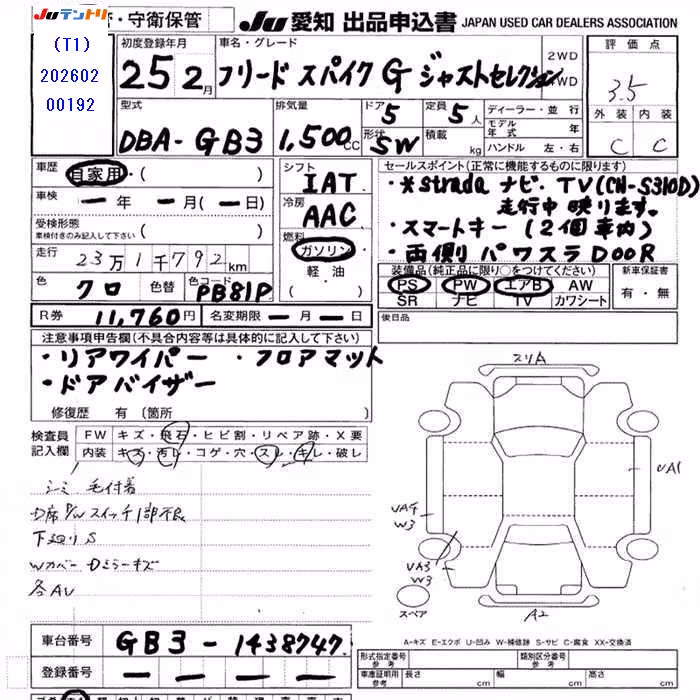 Juテントリ
・守衛保管
Ju 愛知 出品申込書 JAPAN USED CAR DEALERS ASSOCIATION
(T1)
202602
00192
初度登録年月
25 2月
車名・グレード
フリード スパイク G ジャストセレクション
2WD
4WD
評価点
3.5
外装 内装
C C
型式
DBA-GB3
排気量
1,500cc
ドア
5
形状
SW
定員
5人
積載
kg
ディーラー・並行
モデル年式 年
ハンドル 左・右
車歴
自家用・( )
車検
ー年 ー月(ー日)
受検形態
車検付きのみ記入して下さい ( )
走行
23万1千792km
色
クロ
色替
色コード
PB81P
シフト
IAT
冷房
AAC
燃料
ガソリン・
軽油
( )
セールスポイント(正常に機能するものに限ります)
・*strada ナビ・TV(CN-S310D)
走行中映ります。
・スマートキー(2個車内)
・両側パワスラDOOR
装備品(純正品に限り○をつけてください)
PS PW エアB AW
SR ナビ TV カワシート
新車保証書
有・無
R券 11,760円
名変期限 ー月ー日
後日品
注意事項申告欄(不具合内容等は具体的に記入して下さい)
・リアワイパー ・フロアマット
・ドアバイザー
修復歴 有 (箇所 )
検査員
記入欄
FW キズ・飛石・ヒビ割・リペア跡・X要
内装 キズ・汚レ・コゲ・穴・スレ・キレ・破レ
シミ 毛付着
D席P/Wスイッチ1部不良
下廻りS
Wカバー Dミラーキズ
各AU
スリA
UA1
UA4
W3
UA3
W3
スペア
A2
A-キズ E-エクボ U-凹み W-補修跡 S-サビ C-腐食 XX-交換済
車台番号 GB3-1438747.
登録番号 ー ー ー ー
型式指定番号
参考
類別区分番号
参考
車庫証明用
参考
長さ cm
幅 cm
高さ cm